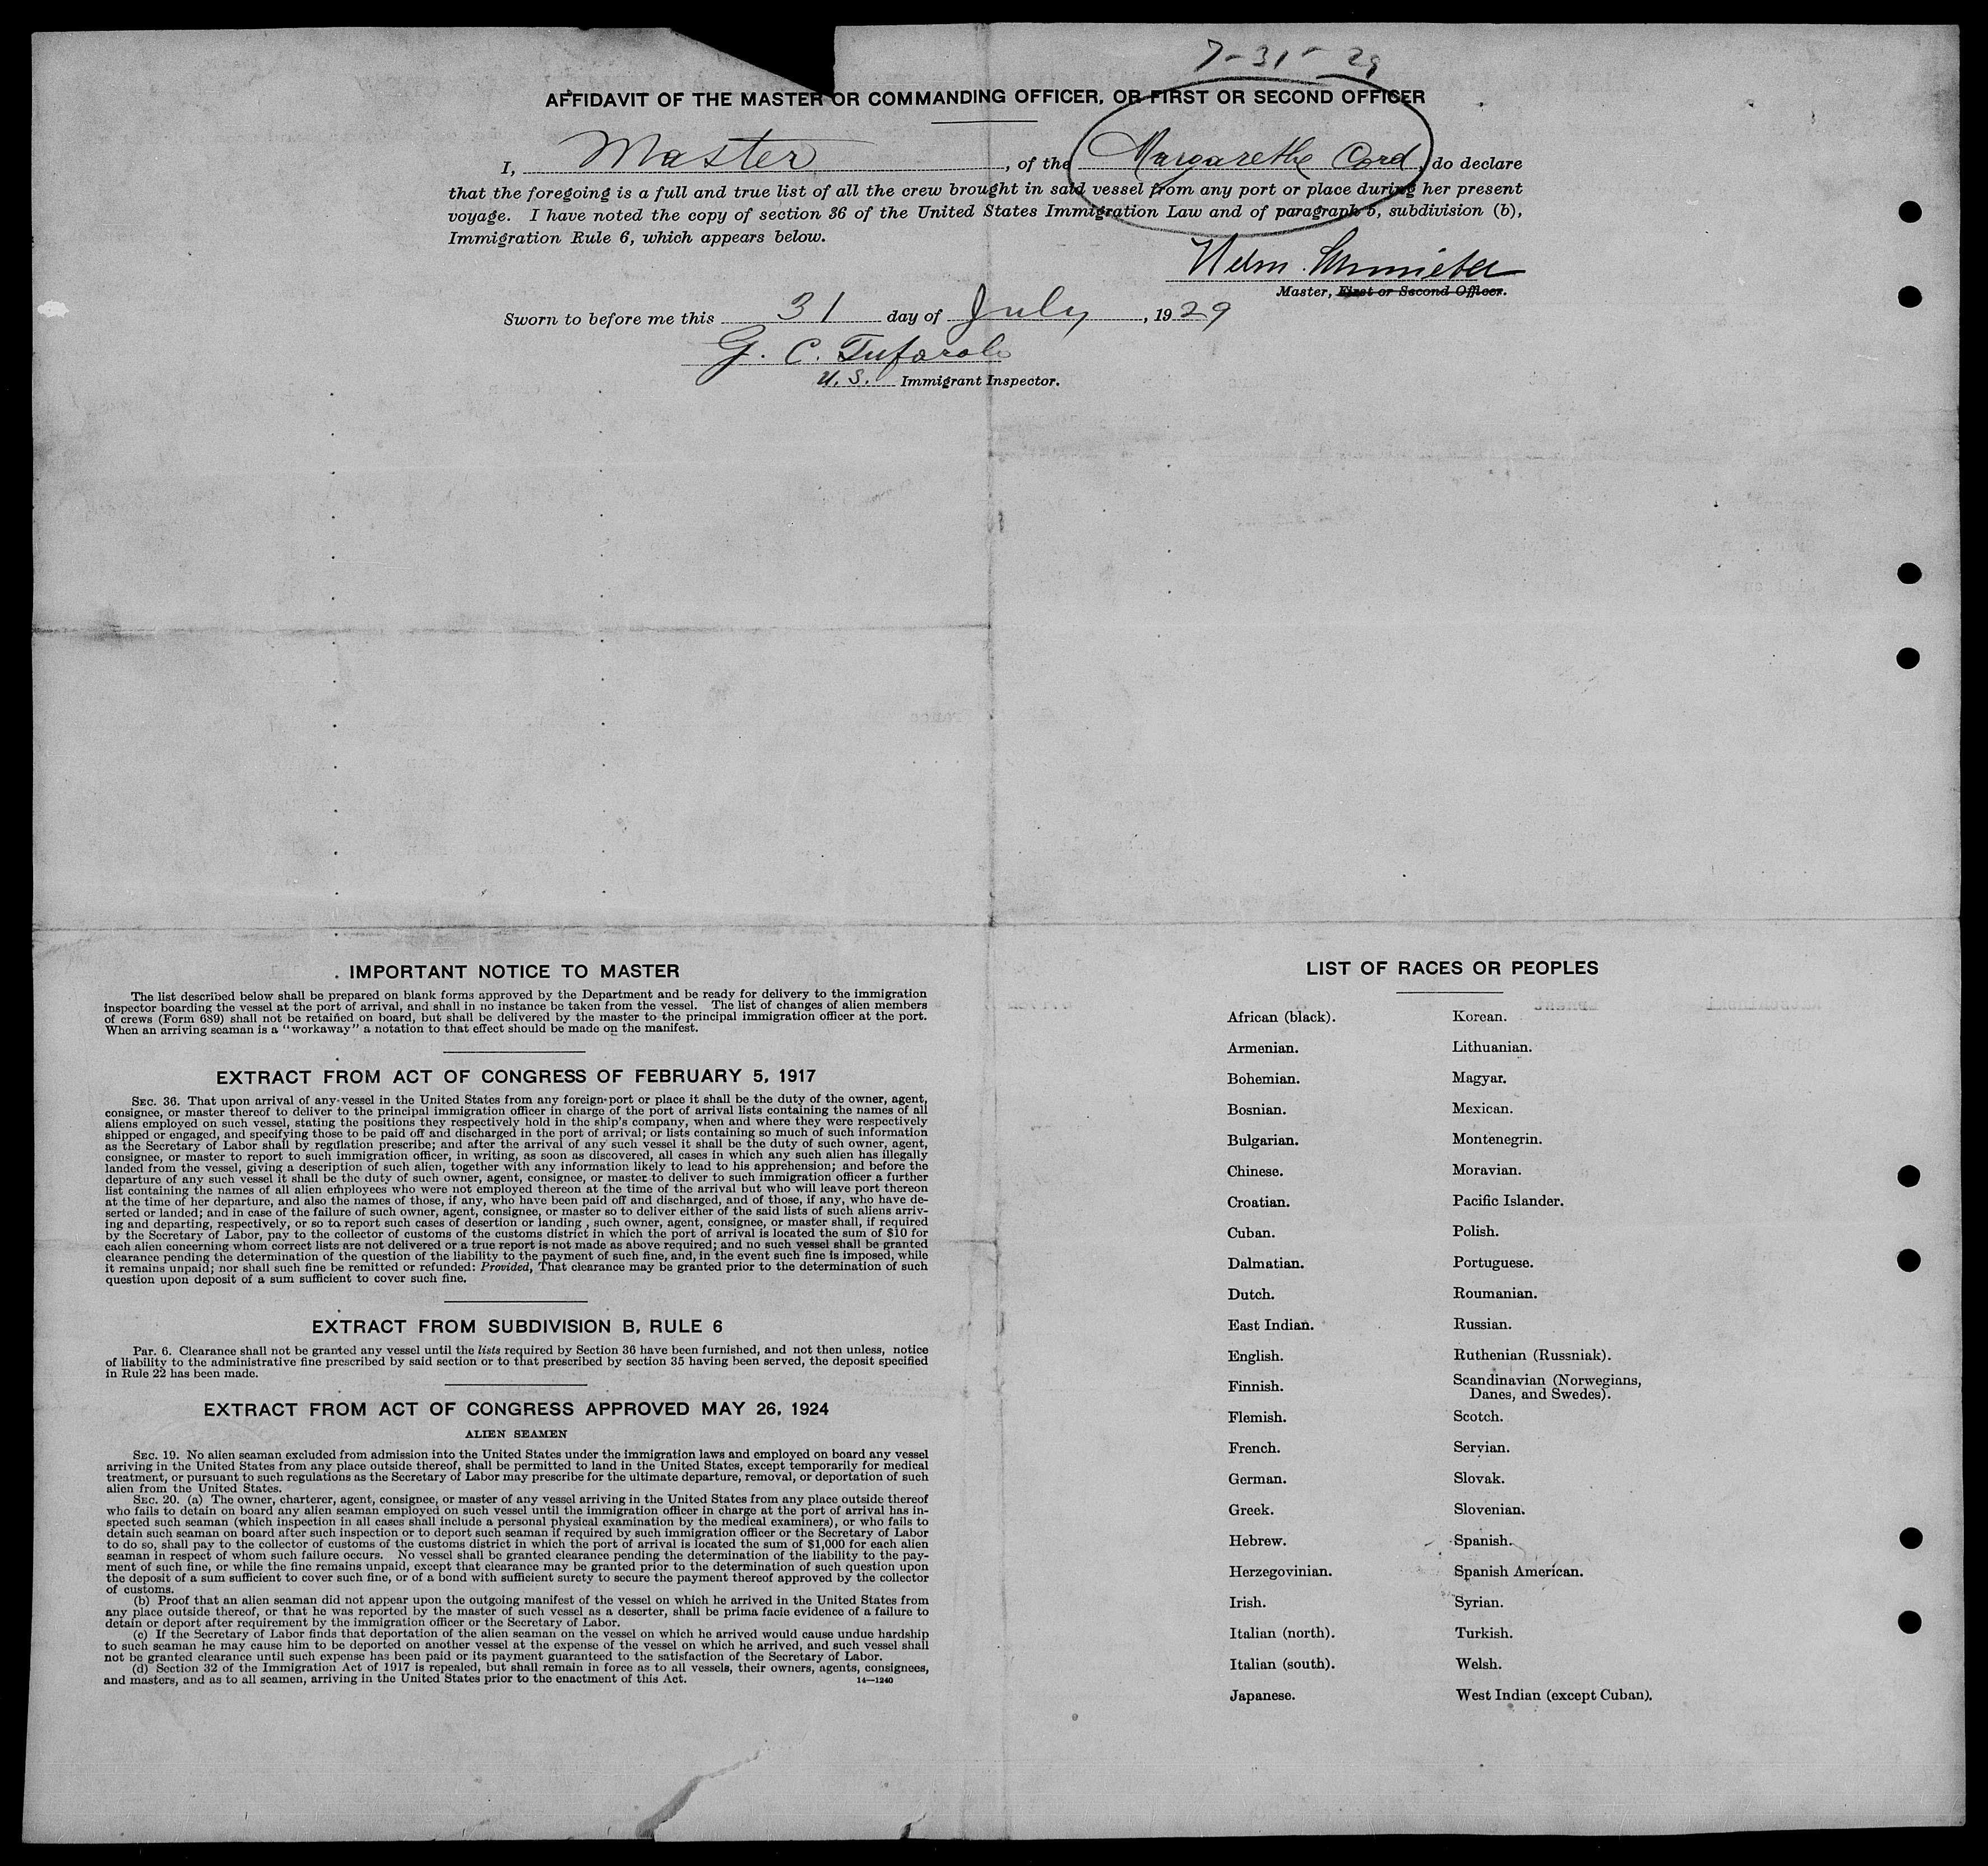 7-31-29
AFFIDAVIT OF THE MASTER OR COMMANDING OFFICER, OR FIRST OR SECOND OFFICER
I, Master, of the Margarethe Cord, do declare
that the foregoing is a full and true list of all the crew brought in said vessel from any port or place during her present
voyage. I have noted the copy of section 36 of the United States Immigration Law and of paragraph 5, subdivision (b),
Immigration Rule 6, which appears below.
Master, First or Second Officer.
Sworn to before me this 31 day of July, 1929
G. C.
U.S. Immigrant Inspector.
. IMPORTANT NOTICE TO MASTER
The list described below shall be prepared on blank forms approved by the Department and be ready for delivery to the immigration
inspector boarding the vessel at the port of arrival, and shall in no instance be taken from the vessel. The list of changes of alien members
of crews (Form 689) shall not be retained on board, but shall be delivered by the master to the principal immigration officer at the port.
When an arriving seaman is a "workaway" a notation to that effect should be made on the manifest.
EXTRACT FROM ACT OF CONGRESS OF FEBRUARY 5, 1917
SEC. 36. That upon arrival of any vessel in the United States from any foreign port or place it shall be the duty of the owner, agent,
consignee, or master thereof to deliver to the principal immigration officer in charge of the port of arrival lists containing the names of all
aliens employed on such vessel, stating the positions they respectively hold in the ship's company, when and where they were respectively
shipped or engaged, and specifying those to be paid off and discharged in the port of arrival; or lists containing so much of such information
as the Secretary of Labor shall by regulation prescribe; and after the arrival of any such vessel it shall be the duty of such owner, agent,
consignee, or master to report to such immigration officer, in writing, as soon as discovered, all cases in which any such alien has illegally
landed from the vessel, giving a description of such alien, together with any information likely to lead to his apprehension; and before the
departure of any such vessel it shall be the duty of such owner, agent, consignee, or master to deliver to such immigration officer a further
list containing the names of all alien employees who were not employed thereon at the time of the arrival but who will leave port thereon
at the time of her departure, and also the names of those, if any, who have been paid off and discharged, and of those, if any, who have de-
serted or landed; and in case of the failure of such owner, agent, consignee, or master so to deliver either of the said lists of such aliens arriv-
ing and departing, respectively, or so to report such cases of desertion or landing, such owner, agent, consignee, or master shall, if required
by the Secretary of Labor, pay to the collector of customs of the customs district in which the port of arrival is located the sum of $10 for
each alien concerning whom correct lists are not delivered or a true report is not made as above required; and no such vessel shall be granted
clearance pending the determination of the question of the liability to the payment of such fine, and, in the event such fine is imposed, while
it remains unpaid; nor shall such fine be remitted or refunded: Provided, That clearance may be granted prior to the determination of such
question upon deposit of a sum sufficient to cover such fine.
EXTRACT FROM SUBDIVISION B, RULE 6
Par. 6. Clearance shall not be granted any vessel until the lists required by Section 36 have been furnished, and not then unless, notice
of liability to the administrative fine prescribed by said section or to that prescribed by section 35 having been served, the deposit specified
in Rule 22 has been made.
EXTRACT FROM ACT OF CONGRESS APPROVED MAY 26, 1924
ALIEN SEAMEN
SEC. 19. No alien seaman excluded from admission into the United States under the immigration laws and employed on board any vessel
arriving in the United States from any place outside thereof, shall be permitted to land in the United States, except temporarily for medical
treatment, or pursuant to such regulations as the Secretary of Labor may prescribe for the ultimate departure, removal, or deportation of such
alien from the United States.
SEC. 20. (a) The owner, charterer, agent, consignee, or master of any vessel arriving in the United States from any place outside thereof
who fails to detain on board any alien seaman employed on such vessel until the immigration officer in charge at the port of arrival has in-
spected such seaman (which inspection in all cases shall include a personal physical examination by the medical examiners), or who fails to
detain such seaman on board after such inspection or to deport such seaman if required by such immigration officer or the Secretary of Labor
to do so, shall pay to the collector of customs of the customs district in which the port of arrival is located the sum of $1,000 for each alien
seaman in respect of whom such failure occurs. No vessel shall be granted clearance pending the determination of the liability to the pay-
ment of such fine, or while the fine remains unpaid, except that clearance may be granted prior to the determination of such question upon
the deposit of a sum sufficient to cover such fine, or of a bond with sufficient surety to secure the payment thereof approved by the collector
of customs.
(b) Proof that an alien seaman did not appear upon the outgoing manifest of the vessel on which he arrived in the United States from
any place outside thereof, or that he was reported by the master of such vessel as a deserter, shall be prima facie evidence of a failure to
detain or deport after requirement by the immigration officer or the Secretary of Labor.
(c) If the Secretary of Labor finds that deportation of the alien seaman on the vessel on which he arrived would cause undue hardship
to such seaman he may cause him to be deported on another vessel at the expense of the vessel on which he arrived, and such vessel shall
not be granted clearance until such expense has been paid or its payment guaranteed to the satisfaction of the Secretary of Labor.
(d) Section 32 of the Immigration Act of 1917 is repealed, but shall remain in force as to all vessels, their owners, agents, consignees,
and masters, and as to all seamen, arriving in the United States prior to the enactment of this Act. 14—1240
LIST OF RACES OR PEOPLES
African (black). Korean.
Armenian. Lithuanian.
Bohemian. Magyar.
Bosnian. Mexican.
Bulgarian. Montenegrin.
Chinese. Moravian.
Croatian. Pacific Islander.
Cuban. Polish.
Dalmatian. Portuguese.
Dutch. Roumanian.
East Indian. Russian.
English. Ruthenian (Russniak).
Finnish. Scandinavian (Norwegians,
Danes, and Swedes).
Flemish. Scotch.
French. Servian.
German. Slovak.
Greek. Slovenian.
Hebrew. Spanish.
Herzegovinian. Spanish American.
Irish. Syrian.
Italian (north). Turkish.
Italian (south). Welsh.
Japanese. West Indian (except Cuban).